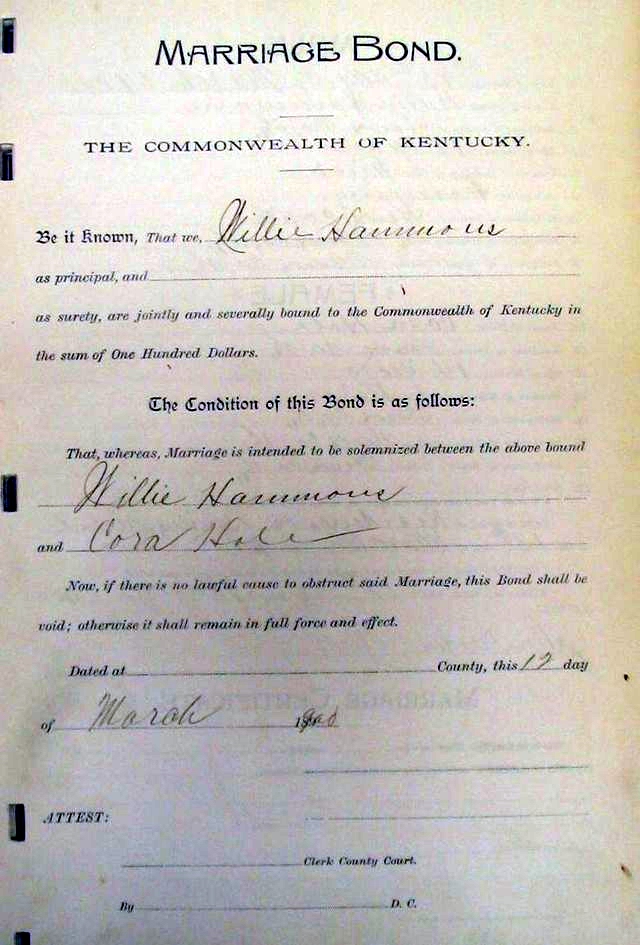 MARRIAGE BOND.
THE COMMONWEALTH OF KENTUCKY.
Be it Known, That we, Willie Hammons
as principal, and
as surety, are jointly and severally bound to the Commonwealth of Kentucky in
the sum of One Hundred Dollars.
The Condition of this Bond is as follows:
That, whereas, Marriage is intended to be solemnized between the above bound
Willie Hammons
and Cora
Now, if there is no lawful cause to obstruct said Marriage, this Bond shall be
void; otherwise it shall remain in full force and effect.
Dated at County, this 12 day
of March
ATTEST:
Clerk County Court.
By D. C.